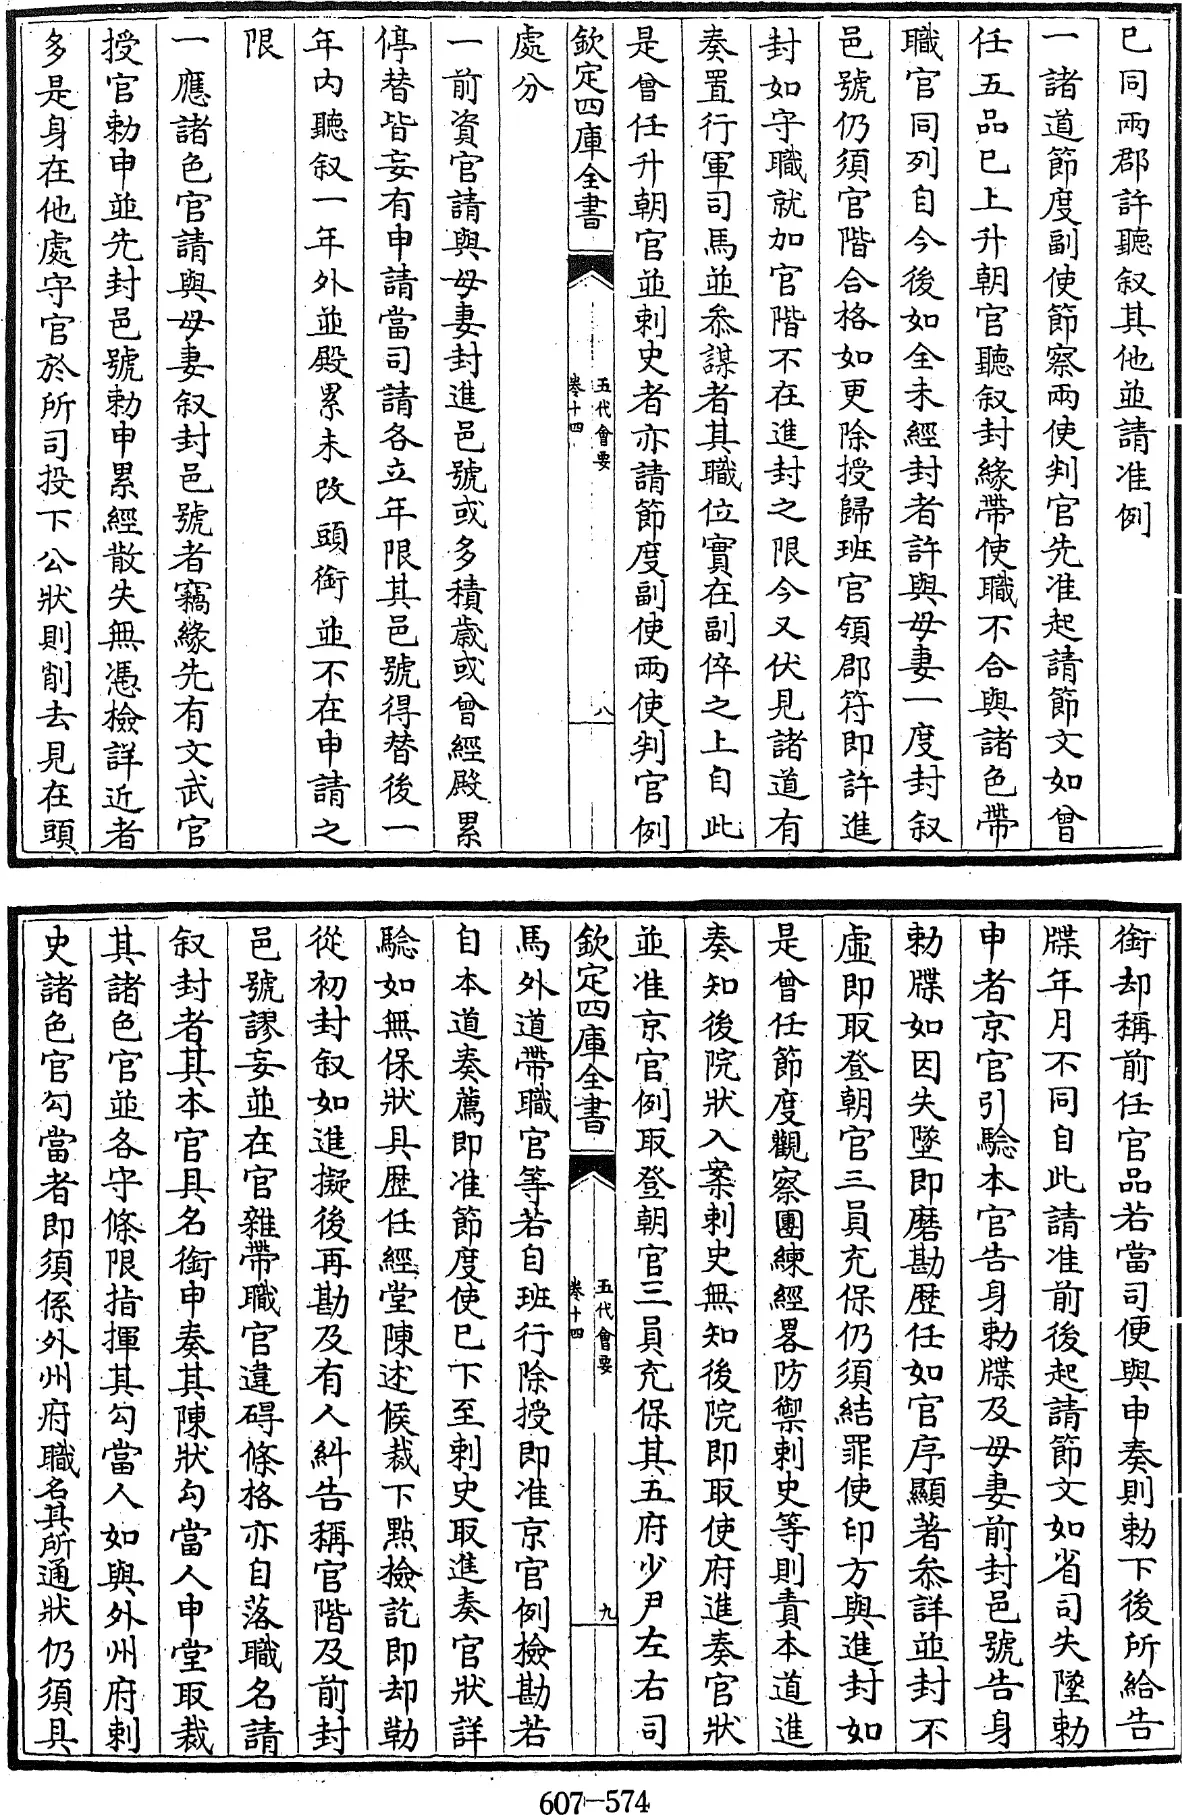 已同兩郡許聽叙其他並請准例
一諸道節度副使節察兩使判官先准起請節文如曾
任五品已上升朝官聽叙封緣帶使職不合與諸色帶
職官同列自今後如全未經封者許與母妻一度封叙
邑號仍須官階合格如更除授歸班官領郡符即許進
封如守職就加官階不在進封之限今又伏見諸道有
奏置行軍司馬並叅謀者其職位實在副倅之上自此
是曾任升朝官並刺史者亦請節度副使兩使判官例
欽定四庫全書
五代會要
卷十四
八
處分
一前資官請與母妻封進邑號或多積歲或曾經殿累
停替皆妄有申請當司請各立年限其邑號得替後一
年內聽叙一年外並殿累未改頭銜並不在申請之
限
一應諸色官請與母妻叙封邑號者竊緣先有文武官
授官勅申並先封邑號勅申累經散失無憑檢詳近者
多是身在他處守官於所司投下公狀則削去見在頭
銜却稱前任官品若當司便與申奏則勅下後所給告
牒年月不同自此請准前後起請節文如省司失墜勅
申者京官引驗本官告身勅牒及母妻前封邑號告身
勅牒如因失墜即磨勘歷任如官序顯著叅詳並封不
虛即取登朝官三員充保仍須結罪使印方與進封如
是曾任節度觀察團練經畧防禦刺史等則責本道進
奏知後院狀入案刺史無知後院即取使府進奏官狀
並准京官例取登朝官三員充保其五府少尹左右司
欽定四庫全書
五代會要
卷十四
九
馬外道帶職官等若自班行除授即准京官例檢勘若
自本道奏薦即准節度使已下至刺史取進奏官狀詳
驗如無保狀具歷任經堂陳述候裁下點檢訖即却勒
從初封叙如進擬後再勘及有人糾告稱官階及前封
邑號謬妄並在官雜帶職官違碍條格亦自落職名請
叙封者其本官具名銜申奏其陳狀勾當人申堂取裁
其諸色官並各守條限指揮其勾當人如與外州府刺
史諸色官勾當者即須係外州府職名其所通狀仍須具
607-574